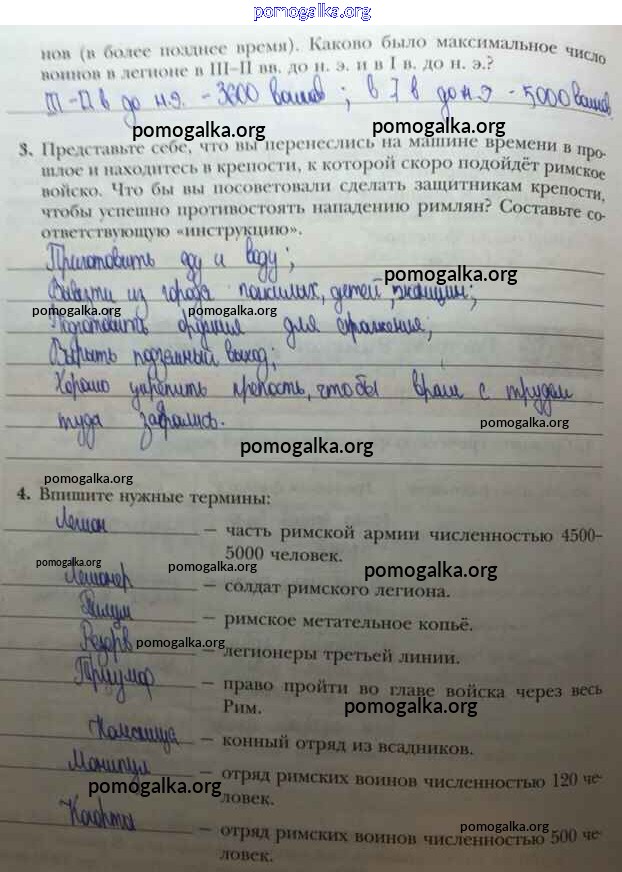 pomogalka.org
нов (в более позднее время). Каково было максимальное число
воинов в легионе в III–II вв. до н. э. и в I в. до н. э.?
III – II в до н.э. - 3600 воинов ; в I в до н.э - 5000 воинов.
pomogalka.org pomogalka.org
3. Представьте себе, что вы перенеслись на машине времени в про-
шлое и находитесь в крепости, к которой скоро подойдёт римское
войско. Что бы вы посоветовали сделать защитникам крепости,
чтобы успешно противостоять нападению римлян? Составьте со-
ответствующую «инструкцию».
Приготовить еду и воду;
pomogalka.org
Вывезти из города пожилых, детей, женщин;
pomogalka.org pomogalka.org
Подготовить орудия для сражения;
Вырыть подземный выход;
Хорошо укрепить крепость, чтобы враги с трудом
туда забрались.
pomogalka.org
pomogalka.org
pomogalka.org
4. Впишите нужные термины:
Легион — часть римской армии численностью 4500–
5000 человек.
pomogalka.org pomogalka.org pomogalka.org
Легионер — солдат римского легиона.
Пилум — римское метательное копьё.
Резерв — легионеры третьей линии.
pomogalka.org
Триумф — право пройти во главе войска через весь
Рим.
pomogalka.org
Конница — конный отряд из всадников.
Манипул — отряд римских воинов численностью 120 че-
ловек.
pomogalka.org
Когорта — отряд римских воинов численностью 500 че-
ловек.
pomogalka.org